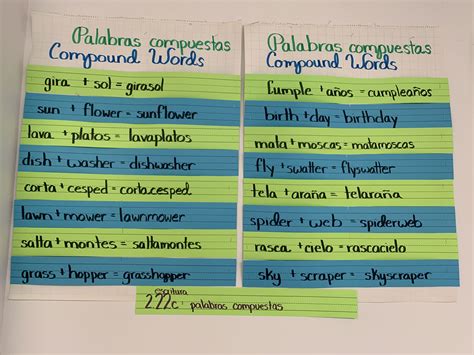 Palabras compuestas
Compound Words
gira + sol = girasol
sun + flower = sunflower
lava + platos = lavaplatos
dish + washer = dishwasher
corta + cesped = cortacesped
lawn + mower = lawnmower
salta + montes = saltamontes
grass + hopper = grasshopper
Palabras compuestas
Compound Words
Cumple + años = cumpleaños
birth + day = birthday
mata + moscas = matamoscas
fly + swatter = flyswatter
tela + araña = telaraña
spider + web = spiderweb
rasca + cielo = rascacielo
sky + scraper = skyscraper
escritura
2.22c: palabras compuestas